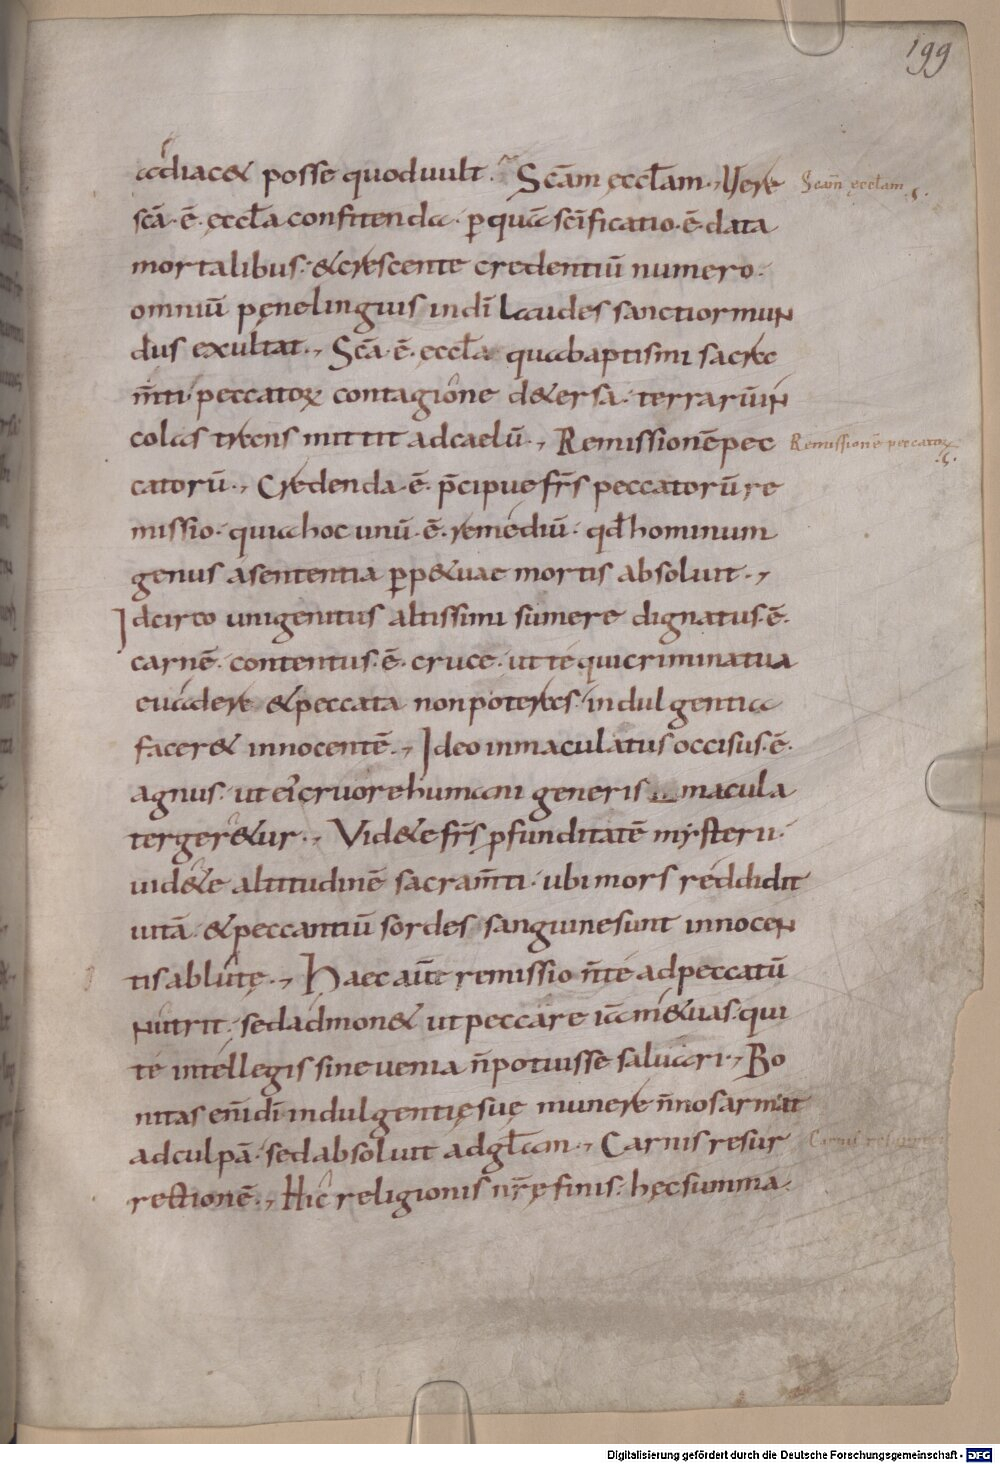 199
adiac& posse quoduult. Scām ęccl̄am., Vere
Scām ęccl̄am
scā·ē·ęccl̄a confitenda· ꝑquā sc̄ificatio·ē·data
mortalibus·&crescente credentiū numero·
omniū pęnelinguis indī laudes sanctior mun
dus exultat., Scā·ē·ęccl̄a quaebaptismi sacrae
m̄ti·peccatoꝝ contagione d&ersa· terrarū in
colas trans mittit adcaelū., Remissionē pec
Remissionē peccatoꝝ
catorū., Credenda·ē·p̄cipuę fr̄s peccatorū re
missio· quia hoc unū·ē·remediū· qd̄ hominum
genus a sententia ꝑp&uae mortis absoluit.,
Idcirco unigenitus altissimi sumere dignatus·ē·
carnē· contentus·ē·cruce· ut te qui crimina tua
euadere &peccata nonpoteras· indulgentia
facer& innocentē., Ideo inmaculatus occisus·ē·
agnus· ut ei cruore humani generis macula
terger&ur., Vid&e fr̄s ꝓfunditatē mysterii·
uid&e altitudinē sacram̄ti· ubi mors reddidit
uitā· &peccantiū sordes sanguine sunt innocen
tis ablutę., Haec aūt remissio n̄ te adpeccatū
nutrit· sed admon& ut peccare iā m&uas· qui
te intellegis sine uenia n̄potuisse saluari., Bo
nitas eni dī indulgentię suę munere n̄ nos armat
adculpā· sedabsoluit adgl̄am., Carnis resur
Carnis resurre
rectionē., Hic religionis nr̄ę finis· hęc summa·
Digitalisierung gefördert durch die Deutsche Forschungsgemeinschaft - DFG